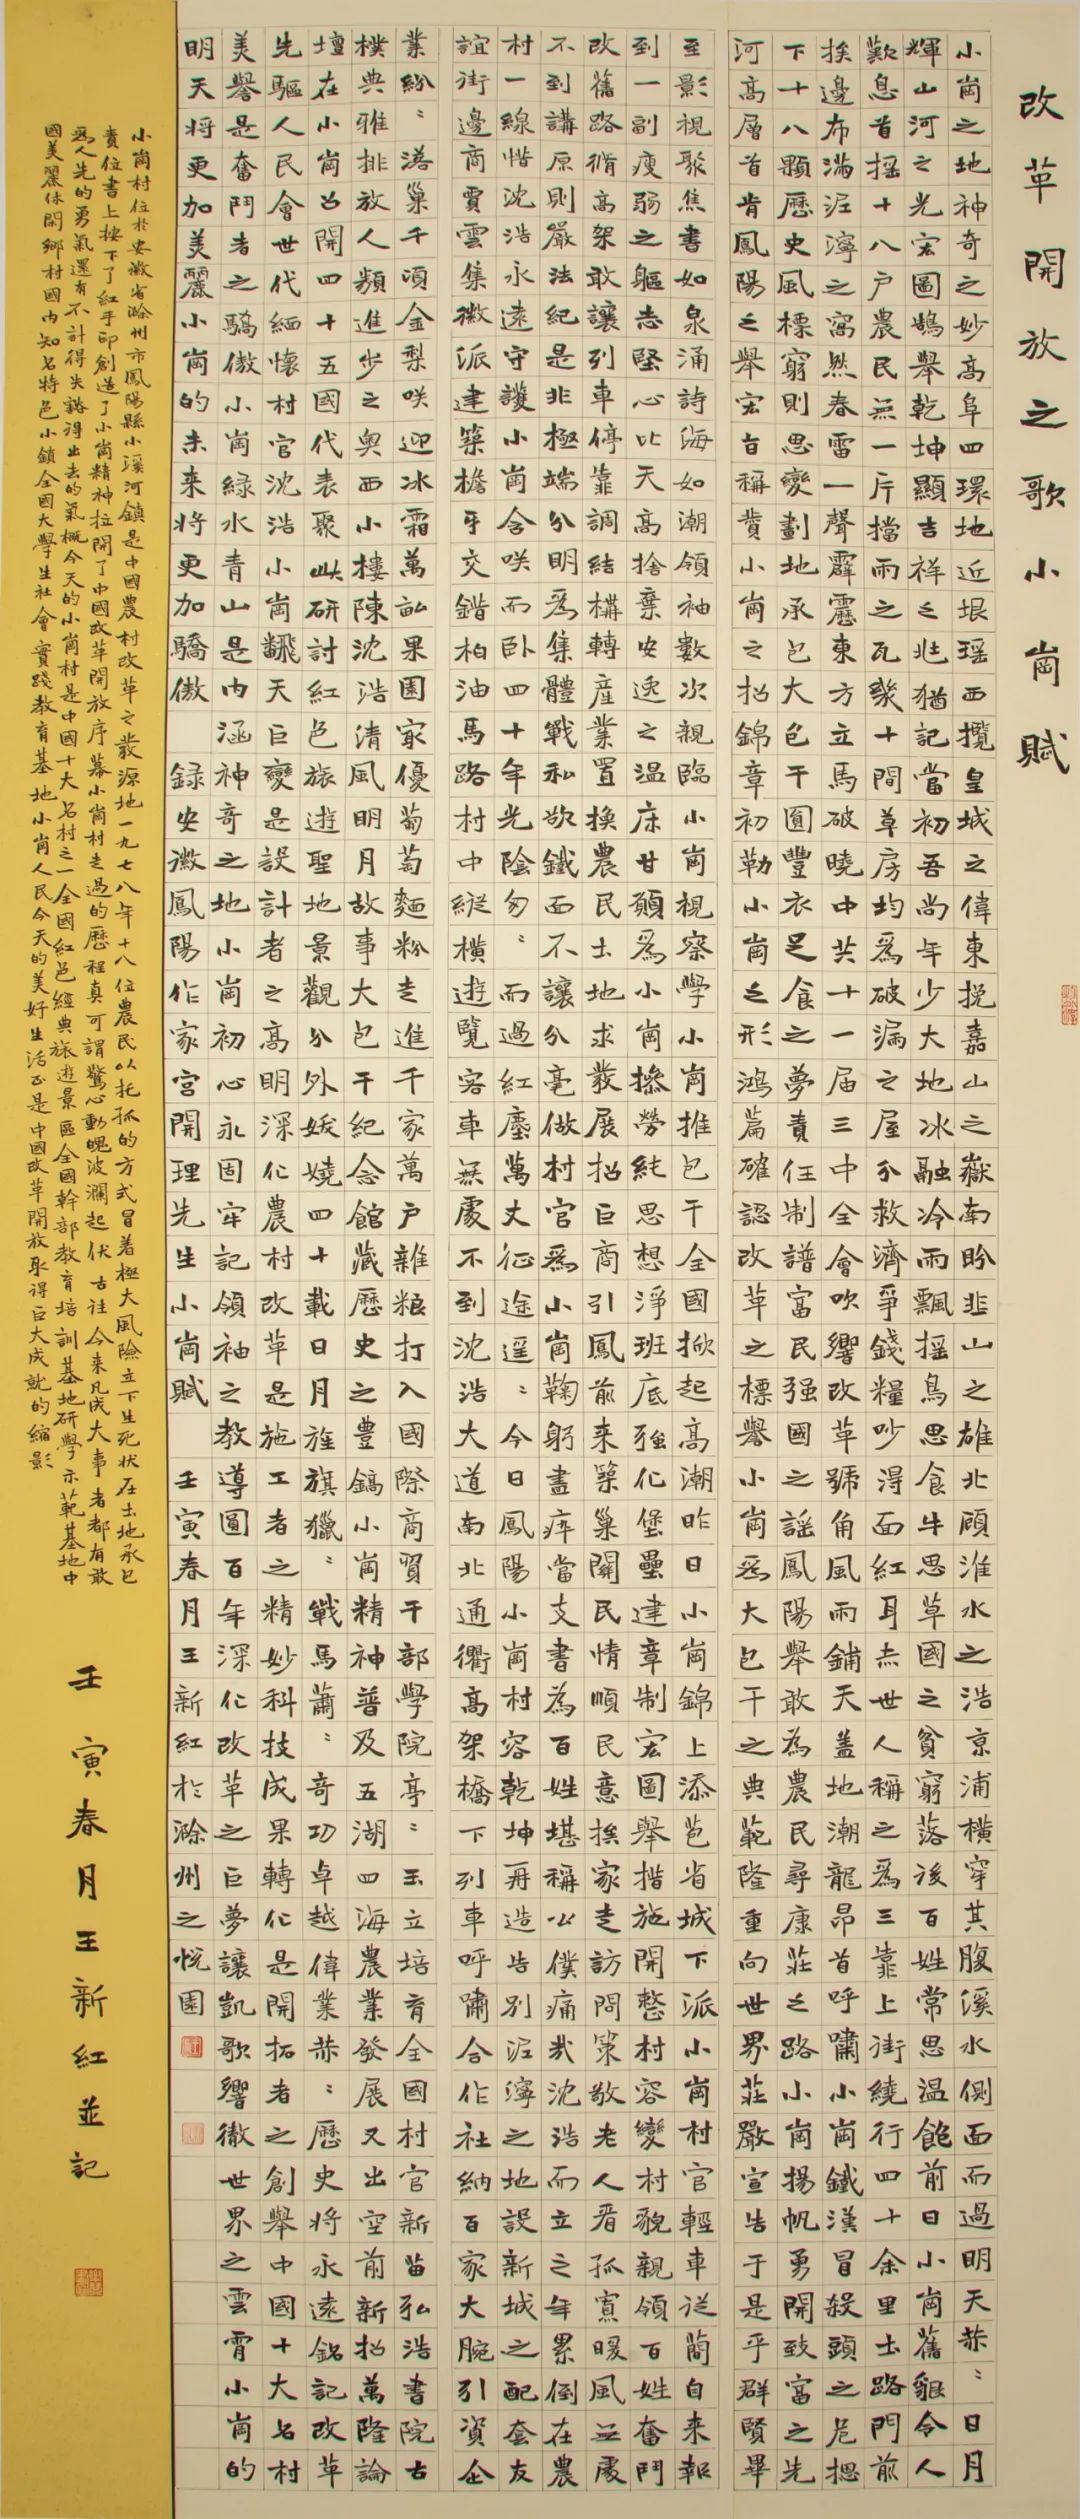 改革開放之歌小崗賦
小崗之地神奇之妙高阜四環地近垠瑶西攬皇城之偉東挽嘉山之嶽南盼韭山之雄北顧淮水之浩京浦橫穿其腹溪水側面而過明天恭〻日月
輝山河之光宏圖鵠舉乾坤顯吉祥之兆猶記當初吾尚年少大地冰融冷雨飄摇鳥思食牛思草國之貧窮落後百姓常思温飽前日小崗舊貌令人
歎息首摇十八户農民無一片擋雨之瓦幾十間草房均爲破漏之屋分救濟爭錢糧吵得面紅耳赤世人稱之爲三靠上街繞行四十余里土路門前
挨邊布滿泥濘之窩然春雷一聲霹靂東方立馬破曉中共十一届三中全會吹響改革號角風雨鋪天蓋地潮龍昂首呼嘯小崗鐵漢冒殺頭之危摁
下十八顆歷史風標窮則思變劃地承包大包干圓豐衣足食之夢責任制譜富民强國之謡鳳陽舉敢為農民尋康莊之路小崗揚帆勇開致富之先
河高層首肯鳳陽之舉宏旨稱贊小崗之招錦章初勒小崗之形鴻篇確認改革之標譽小崗爲大包干之典範隆重向世界莊嚴宣告于是乎群賢畢
至影視聚焦書如泉涌詩海如潮領袖數次親臨小崗視察學小崗推包干全國掀起高潮昨日小崗錦上添芭省城下派小崗村官輕車從簡自来報
到一副瘦弱之軀志堅心比天高捨棄安逸之温床甘願爲小崗操勞純思想淨班底強化堡壘建章制宏圖舉措施開整村容變村貌親領百姓奮鬥
改舊路脩高架敢讓列車停靠調結構轉産業置換農民土地求發展招巨商引鳳前来築巢闢民情順民意挨家走訪問策敬老人看孤寡暖風正處
不到講原則嚴法紀是非極端分明爲集體戰私欲鐵面不讓分毫做村官爲小崗鞠躬盡瘁當支書為百姓堪稱公僕痛哉沈浩而立之年累倒在農
村一線惜沈浩永遠守護小崗含咲而卧四十年光陰匆〻而過紅塵萬丈征途遥〻今日鳳陽小崗村容乾坤再造告别泥濘之地設新城之配套友
誼街邊商賈雲集徽派建築檐牙交錯柏油馬路村中縱横遊覽客車無處不到沈浩大道南北通衢高架橋下列車呼嘯合作社納百家大腕引資企
業紛〻落巢千頃金梨咲迎冰霜萬畝果園家優葡萄麵粉走進千家萬户雜粮打入國際商貿干部學院亭〻玉立培育全國村官新苗弘浩書院古
樸典雅排放人類進步之奧西小樓陳沈浩清風明月故事大包干紀念館藏歷史之豐鎬小崗精神普及五湖四海農業發展又出空前新招萬隆論
壇在小崗召開四十五國代表聚此研討紅色旅遊聖地景觀分外妖嬈四十載日月旌旗獵〻戰馬蕭〻奇功卓越偉業恭〻歷史將永遠銘記改革
先驅人民會世代緬懷村官沈浩小崗翻天巨變是設計者之高明深化農村改革是施工者之精妙科技成果轉化是開拓者之創舉中國十大名村
美譽是奮鬥者之驕傲小崗綠水青山是内涵神奇之地小崗初心永固牢記領袖之教導圓百年深化改革之巨夢讓凱歌響徹世界之雲霄小崗的
明天将更加美麗小崗的未来将更加驕傲 録安徽鳳陽作家宫開理先生小崗賦 壬寅春月王新紅於滁州之悦園
小崗村位於安徽省滁州市鳳陽縣小溪河鎮是中國農村改革之發源地一九七八年十八位農民以托孤的方式冒着極大風險立下生死状在土地承包
責位書上按下了紅手印創造了小崗精神拉開了中國改革開放序幕小崗村走過的歷程真可謂驚心動魄波瀾起伏古往今来凡成大事者都有敢
爲人先的勇氣還有不計得失豁得出去的氣概今天的小崗村是中國十大名村之一全國紅色經典旅遊景區全國幹部教育培訓基地研學示範基地中
國美麗休閑鄉村國内知名特色小鎮全國大學生社會實踐教育基地小崗人民今天的美好生活正是中國改革開放取得巨大成就的縮影
壬寅春月王新紅並記